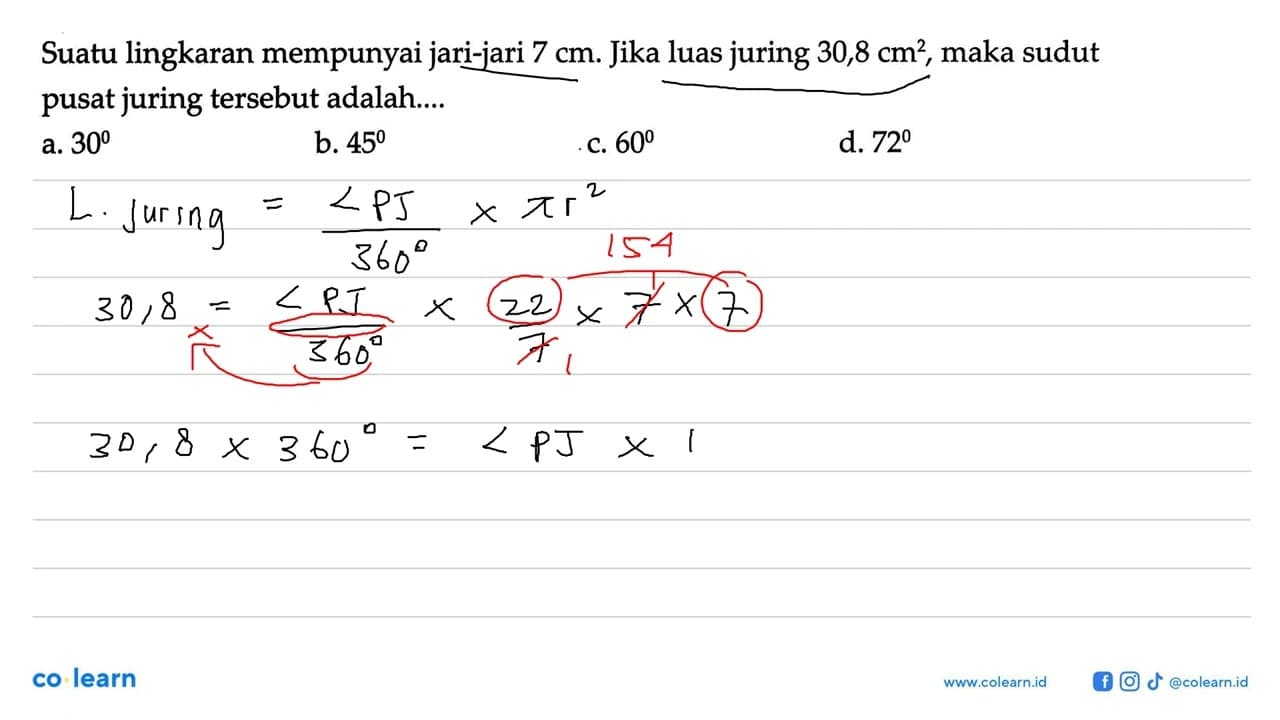 Suatu lingkaran mempunyai jari-jari 7 cm. Jika luas juring 30,8 cm², maka sudut
pusat juring tersebut adalah....
a. 30⁰ b. 45⁰ c. 60⁰ d. 72⁰
L. Juring = <PJ/360° x πr²
154
30,8 = <PJ/360° x 22/7 x 7 x 7
x
1
30,8 x 360° = <PJ x 1
co learn www.colearn.id @colearn.id